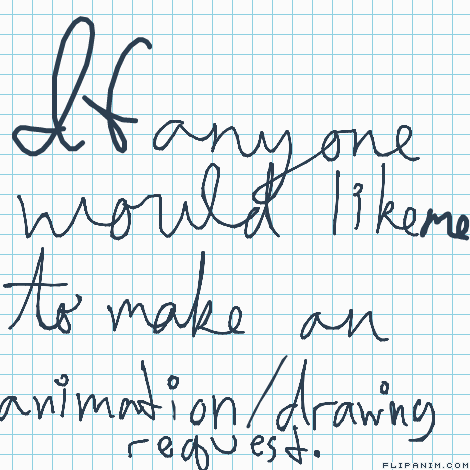 If anyone
would like me
to make an
animation/drawing
request.
FLIPANIM.COM